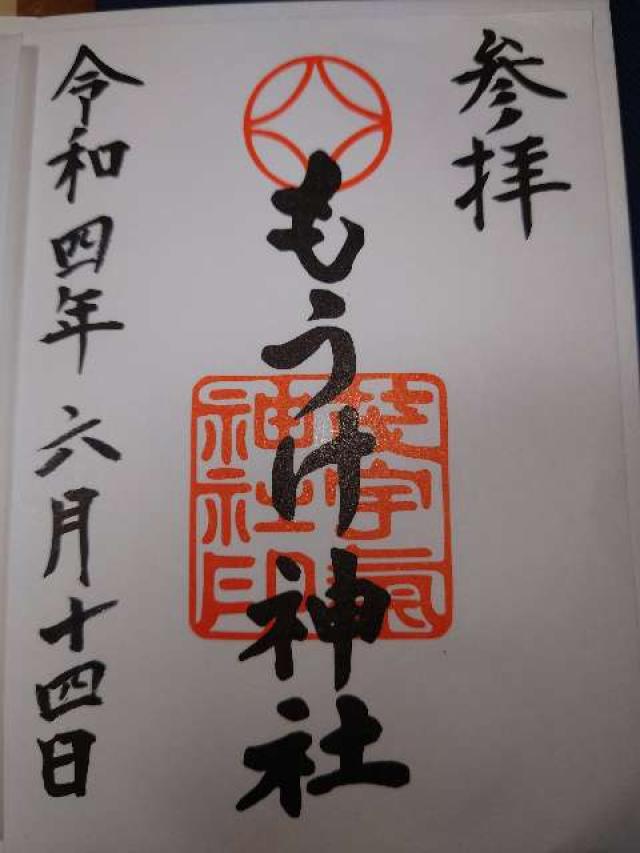 参拝
もうけ神社
神社印
令和四年六月十四日